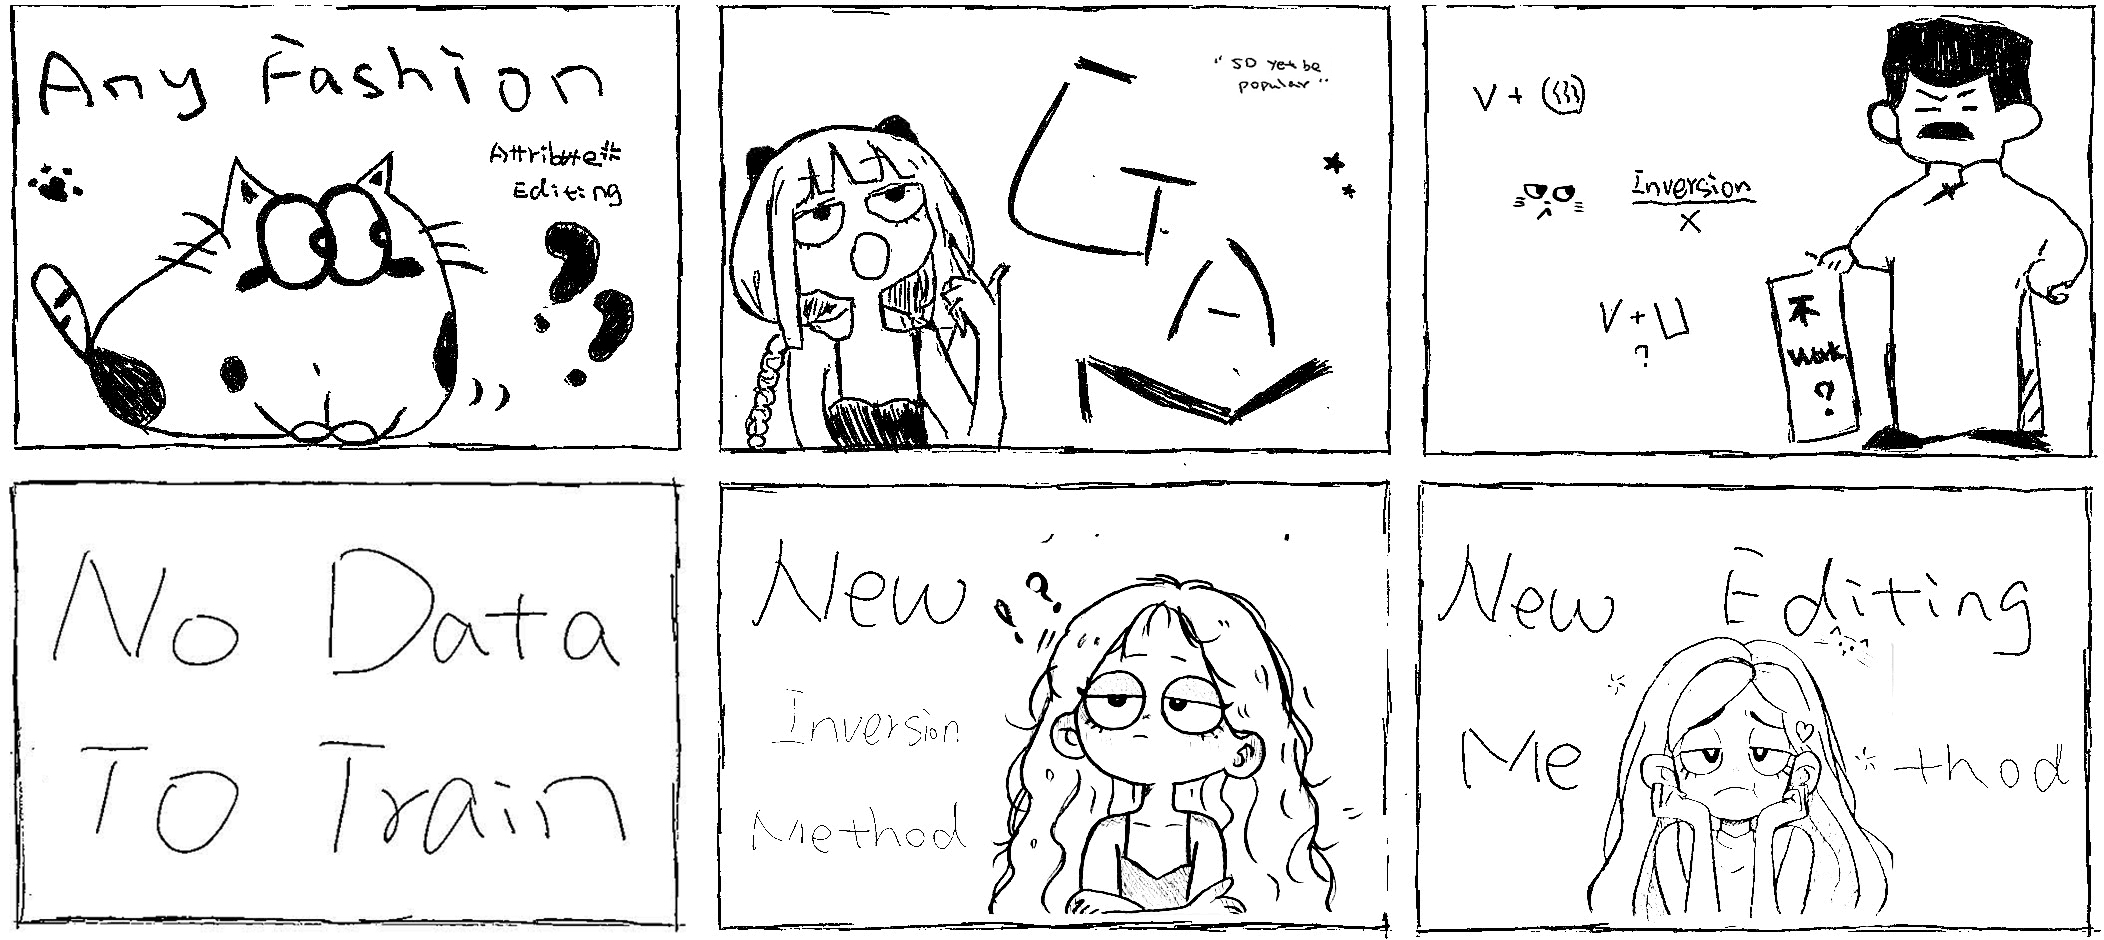 Any Fashion
Attribute
Editing
" SD yet be
popular "
G
A
V +
Inversion
X
V +
?
不
Work
?
No Data
To Train
New
??
Inversion
Method
New Editing
Me thod